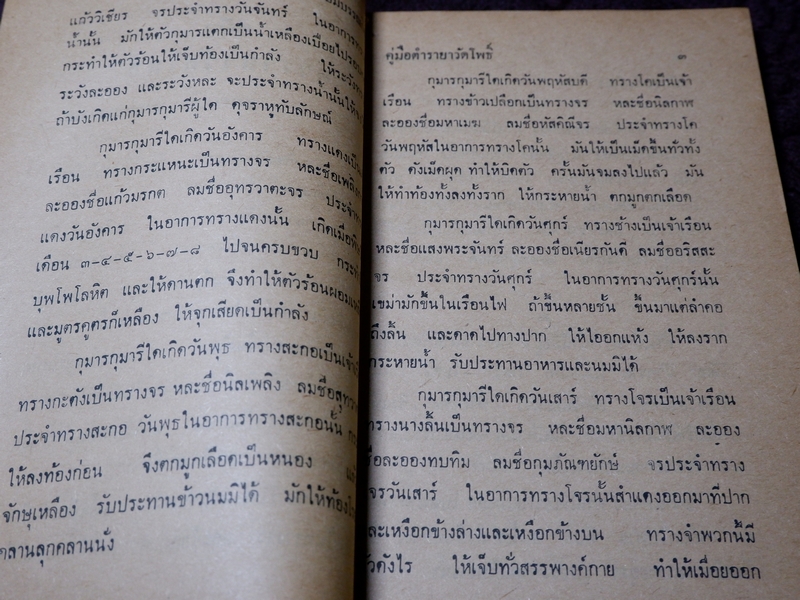 แก้ววิเชียร จรประจำทรางวันจันทร์ ในอาการทราง
น้ำนั้น มักให้ตัวกุมารแตกเป็นน้ำเหลืองเปื่อยไป
กระทำให้ตัวร้อนให้เจ็บท้องเป็นกำลัง ให้ระวัง
ระวังละออง และระวังหละ จะประจำทรางน้ำนั้นให้
ถ้าบังเกิดแก่กุมารกุมารีผู้ใด ดุจราหูทับลักษณ์
กุมารกุมารีใดเกิดวันอังคาร ทรางแดงเป็น
เรือน ทรางกระแหนะเป็นทรางจร หละชื่อเพลิง
ละอองชื่อแก้วมรกต ลมชื่ออุทรวาตะจร ประจำ
แดงวันอังคาร ในอาการทรางแดงนั้น เกิดเมื่อ
เดือน ๓-๔-๕-๖-๗-๘ ไปจนครบขวบ กระทำ
บุพโพโลหิต และให้ดานตก จึงทำให้ตัวร้อนผอม
และมูตรคูตรก็เหลือง ให้จุกเสียดเป็นกำลัง
กุมารกุมารีใดเกิดวันพุธ ทรางสะกอเป็นเจ้า
ทรางกะตังเป็นทรางจร หละชื่อนิลเพลิง ลมชื่อ
ประจำทรางสะกอ วันพุธในอาการทรางสะกอนั้น
ให้ลงท้องก่อน จึงตกมูกเลือดเป็นหนอง
จักษุเหลือง รับประทานข้าวนมมิได้ มักให้ท้อง
คลานลุกคลานนั่ง
คู่มือตำรายาวัดโพธิ์ ๓
กุมารกุมารีใดเกิดวันพฤหัสบดี ทรางโคเป็นเจ้า
เรือน ทรางข้าวเปลือกเป็นทรางจร หละชื่อนิลกาฬ
ละอองชื่อมหาเมฆ ลมชื่อหัสคิณีจร ประจำทรางโค
วันพฤหัสในอาการทรางโคนั้น มันให้เป็นเม็ดขึ้นทั่วทั้ง
ตัว ดังเม็ดผด ทำให้บิดตัว ครั้นมันจมลงไปแล้ว มัน
ให้ทำท้องทั้งลงทั้งราก ให้กระหายน้ำ ตกมูกตกเลือด
กุมารกุมารีใดเกิดวันศุกร์ ทรางช้างเป็นเจ้าเรือน
หละชื่อแสงพระจันทร์ ละอองชื่อเนียรกันดี ลมชื่ออริสสะ
จร ประจำทรางวันศุกร์ ในอาการทรางวันศุกร์นั้น
เขม่ามักขึ้นในเรือนไฟ ถ้าขึ้นหลายชั้น ขึ้นมาแต่ลำคอ
ถึงลิ้น และดาดไปทางปาก ให้ไอออกแห้ง ให้ลงราก
กระหายน้ำ รับประทานอาหารและนมมิได้
กุมารกุมารีใดเกิดวันเสาร์ ทรางโจรเป็นเจ้าเรือน
ทรางนางลิ้นเป็นทรางจร หละชื่อมหานิลกาฬ ละออง
ชื่อละอองทบทิม ลมชื่อกุมภัณฑยักษ์ จรประจำทราง
โจรวันเสาร์ ในอาการทรางโจรนั้นสำแดงออกมาที่ปาก
และเหงือกข้างล่างและเหงือกข้างบน ทรางจำพวกนี้มี
ตัวดังไร ให้เจ็บทั่วสรรพางค์กาย ทำให้เมื่อยออก